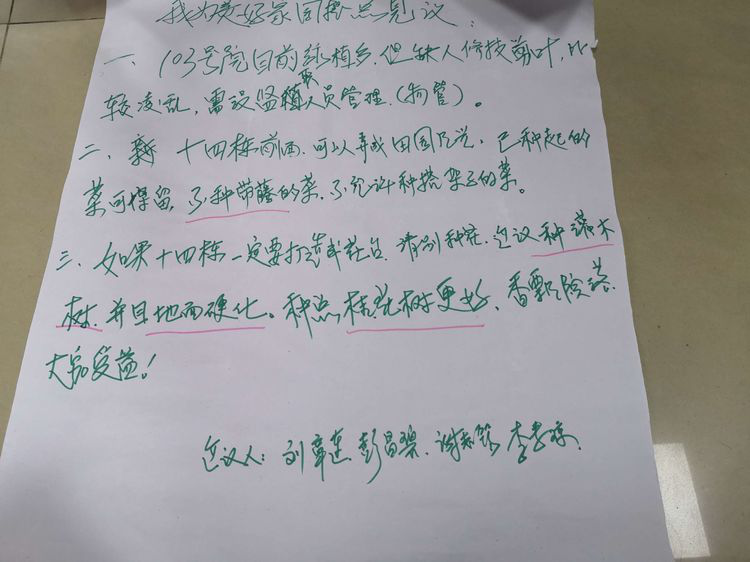 我为美好家园提点见议:
一、103号院目前绿植多,但缺人修枝剪叶,比
较凌乱,需设监督人员管理。(物管)。
二、十四栋前面,可以弄成田园风光,已种起的
菜可保留,不种带藤的菜,不允许种搭架子的菜。
三、如果十四栋一定要打造成花台,请别种花,建议种乔木
树,并且地面硬化。种点桂花树更好,香飘院落,
大家受益!
建议人:刘章莲 彭昌碧、谢